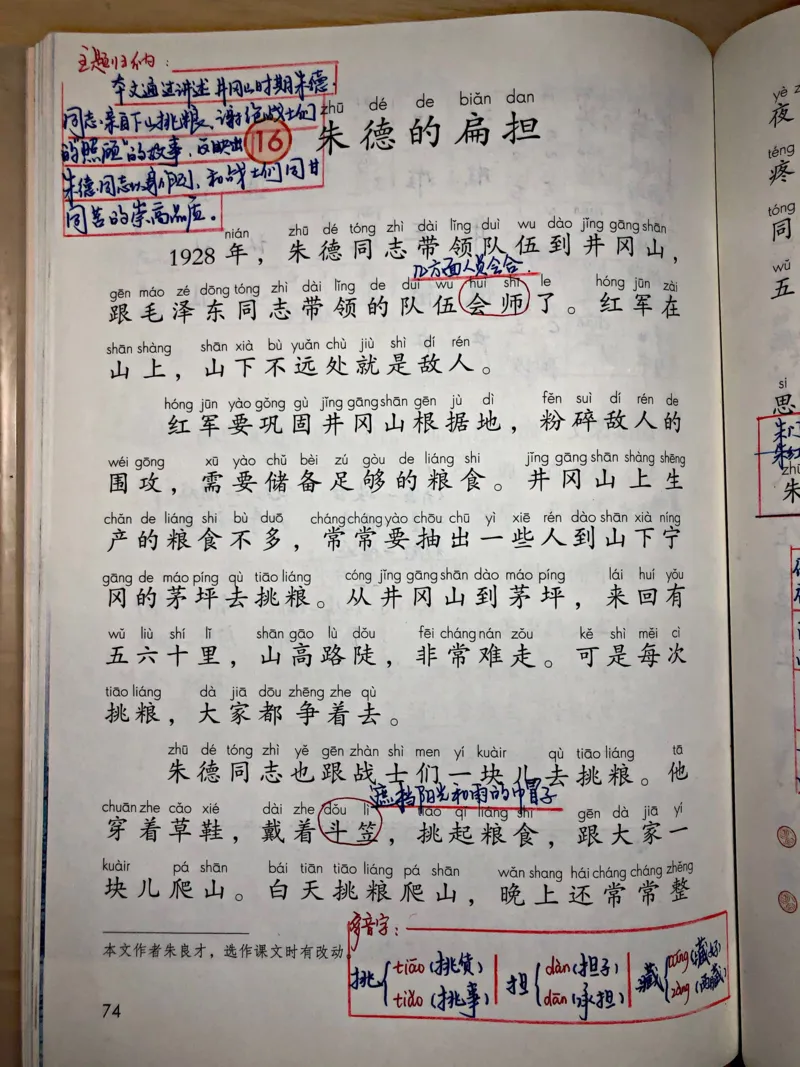 主题归纳：
本文通过讲述井冈山时期朱德
同志亲自下山挑粮、谢绝战士们
的“照顾”的故事，反映出
朱德同志以身作则、和战士们同甘
同苦的崇高品质。
zhū dé de biǎn dan
16 朱德的扁担
nián zhū dé tóng zhì dài lǐng duì wu dào jǐng gāng shān
1928 年，朱德同志带领队伍到井冈山，
几方面人员会合.
gēn máo zé dōng tóng zhì dài lǐng de duì wu huì shī le hóng jūn zài
跟毛泽东同志带领的队伍会师了。红军在
shān shàng shān xià bù yuǎn chù jiù shì dí rén
山上，山下不远处就是敌人。
hóng jūn yào gǒng gù jǐng gāng shān gēn jù dì fěn suì dí rén de
红军要巩固井冈山根据地，粉碎敌人的
wéi gōng xū yào chǔ bèi zú gòu de liáng shi jǐng gāng shān shàng shēng
围攻，需要储备足够的粮食。井冈山上生
chǎn de liáng shi bù duō cháng cháng yào chōu chū yì xiē rén dào shān xià níng
产的粮食不多，常常要抽出一些人到山下宁
gāng de máo píng qù tiāo liáng cóng jǐng gāng shān dào máo píng lái huí yǒu
冈的茅坪去挑粮。从井冈山到茅坪，来回有
wǔ liù shí lǐ shān gāo lù dǒu fēi cháng nán zǒu kě shì měi cì
五六十里，山高路陡，非常难走。可是每次
tiāo liáng dà jiā dōu zhēng zhe qù
挑粮，大家都争着去。
zhū dé tóng zhì yě gēn zhàn shì men yí kuàir qù tiāo liáng tā
朱德同志也跟战士们一块儿去挑粮。他
遮挡阳光和雨的巾帽子
chuān zhe cǎo xié dài zhe dǒu lì tiāo qǐ liáng shi gēn dà jiā yí
穿着草鞋，戴着斗笠，挑起粮食，跟大家一
kuàir pá shān bái tiān tiāo liáng pá shān wǎn shang hái cháng cháng zhěng
块儿爬山。白天挑粮爬山，晚上还常常整
本文作者朱良才，选作课文时有改动。
多音字：
挑 tiāo（挑货） tiǎo（挑事）
担 dàn（担子） dān（承担）
藏 cáng（藏好） zàng（西藏）
74
yè
夜
téng
疼
tóng
同
wǔ
五
sī
思
zhū
朱